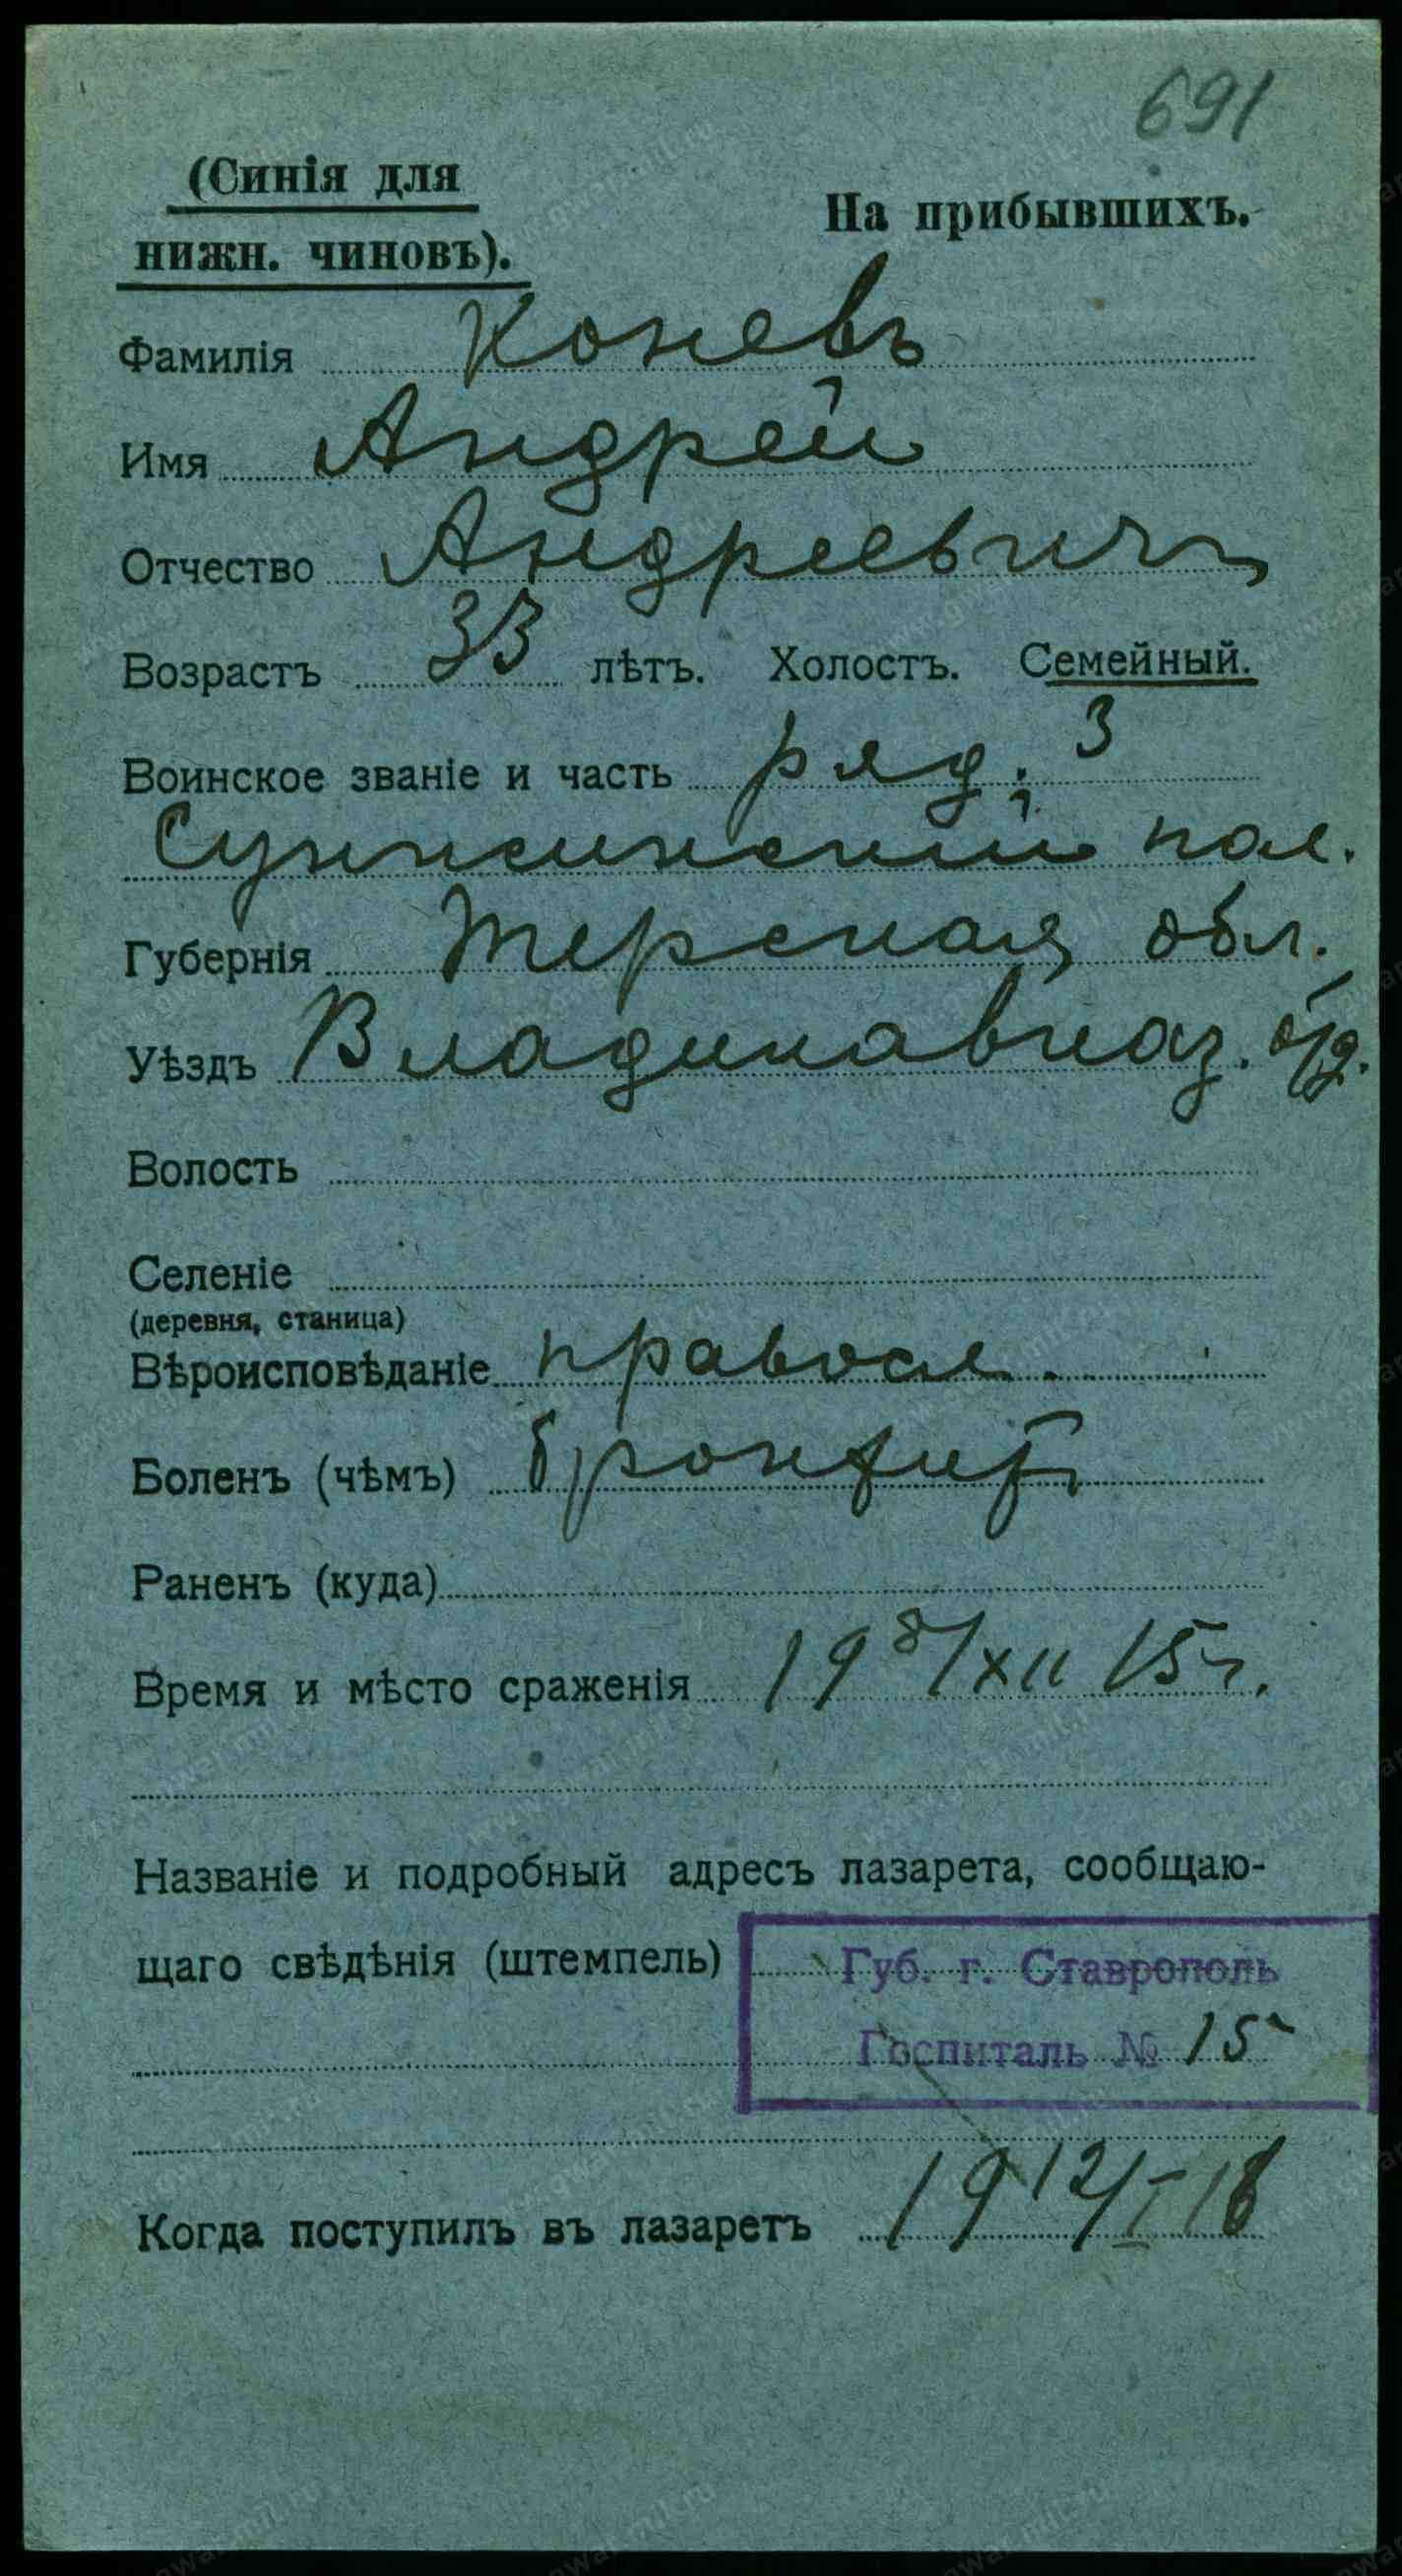 691
(Синія для
нижн. чиновъ).
На прибывшихъ.
Фамилія Коневъ
Имя Андрей
Отчество Андреевичъ
Возрастъ 33 лѣтъ. Холостъ. Семейный.
Воинское званіе и часть ряд. 3
Сунженскій пол.
Губернія Терская обл.
Уѣздъ Владикавказ.
Волость
Селеніе
(деревня, станица)
Вѣроисповѣданіе правосл.
Боленъ (чѣмъ) бронхитъ
Раненъ (куда)
Время и мѣсто сраженія 19 8/XII 15 г.
Названіе и подробный адресъ лазарета, сообщаю-
щаго свѣдѣнія (штемпель) Губ. г. Ставрополь
Госпиталь № 15
Когда поступилъ въ лазаретъ 19 12/I 16